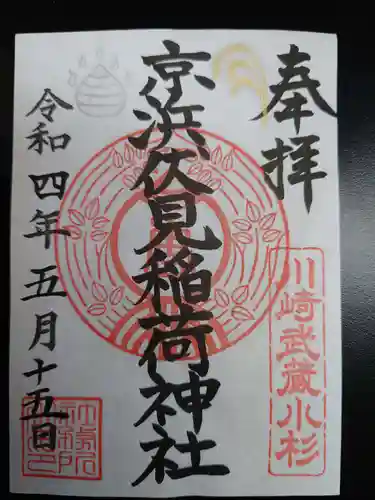 奉拝
川崎武蔵小杉
京浜伏見稲荷神社
令和四年五月十五日